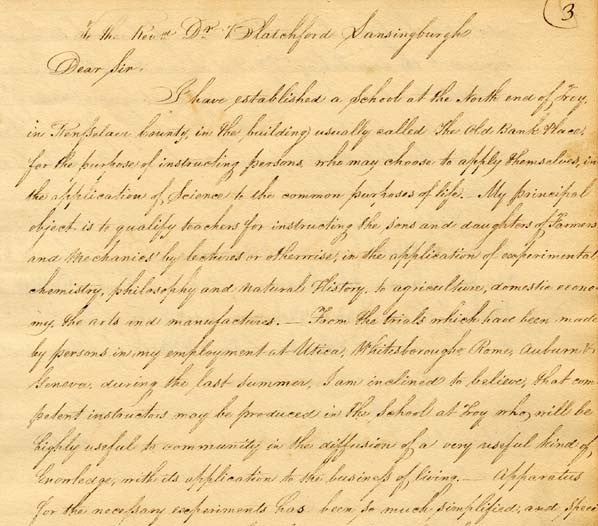 3
To the Revd Dr Blatchford Lansingburgh
Dear Sir,
I have established a school at the North end of Troy,
in Rensselaer County, in the building usually called the Old Bank Place,
for the purpose of instructing persons, who may choose to apply themselves, in
the application of Science to the common purposes of life. — My principal
object is to qualify teachers for instructing the sons and daughters of Farmers
and Mechanics, by lectures or otherwise, in the application of experimental
chemistry, philosophy and natural History, to agriculture, domestic econo-
my, the arts and manufactures. — From the trials which have been made
by persons in my employment at Utica, Whitesborough, Rome, Auburn &
Geneva, during the last summer, I am inclined to believe, that com-
petent instructors may be produced in the School at Troy who, will be
highly useful to community in the diffusion of a very useful kind of
knowledge, with its application to the business of living. — Apparatus
for the necessary experiments has been so much simplified, and speci